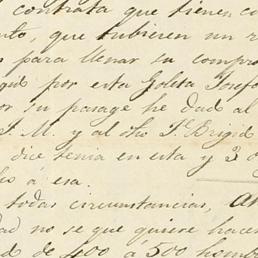 contrata que tienen co
nto, que tubieren un r
para llenar su compro
por esta Goleta Josef
or su pasage he dad al
J. M. y al Sto
dice tenia en esta y 3 o
á esa.
todas circunstancias, an
dad no se que quiere hacer
d de 400 á 500 homb